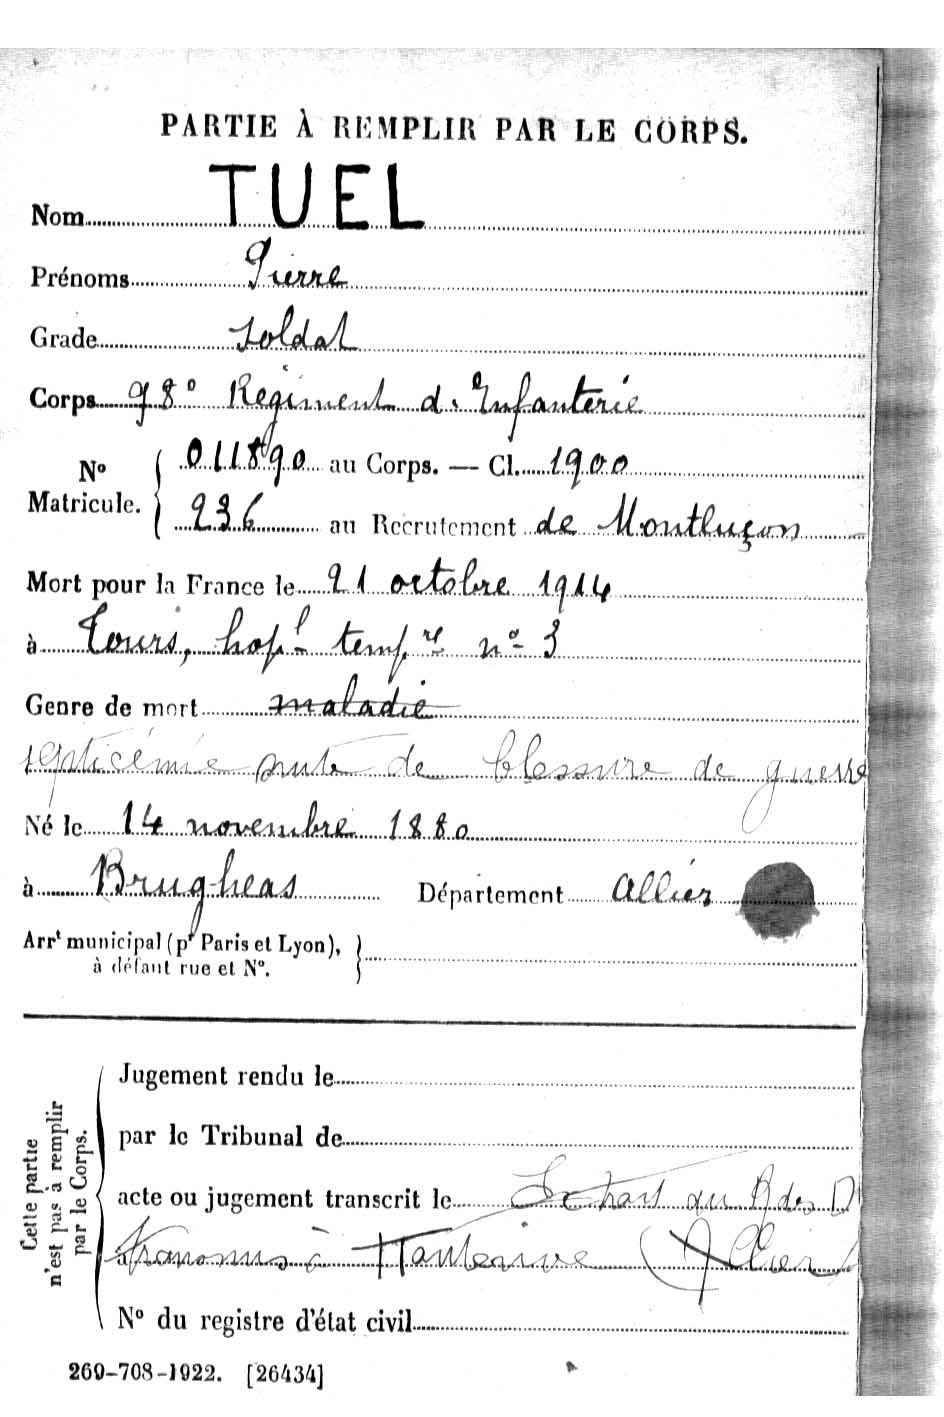 PARTIE À REMPLIR PAR LE CORPS.
Nom TUEL
Prénoms Pierre
Grade Soldat
Corps 98e Régiment d'Infanterie
No Matricule. 011890 au Corps. — Cl. 1900
236 au Recrutement de Montluçon
Mort pour la France le 21 octobre 1914
à Tours, hopl tempre no 3
Genre de mort maladie
septicémie suite de blessure de guerre
Né le 14 novembre 1880
à Brugheas Département Allier
Arrt municipal (pr Paris et Lyon),
à défaut rue et No.
Cette partie n'est pas à remplir par le Corps.
Jugement rendu le
par le Tribunal de
acte ou jugement transcrit le Extrait du R des D
à transmis à Hauterive (Allier)
No du registre d'état civil
269-708-1922. [26434]